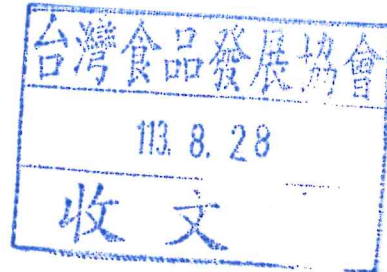 台灣食品發展協會
113. 8. 28
收文